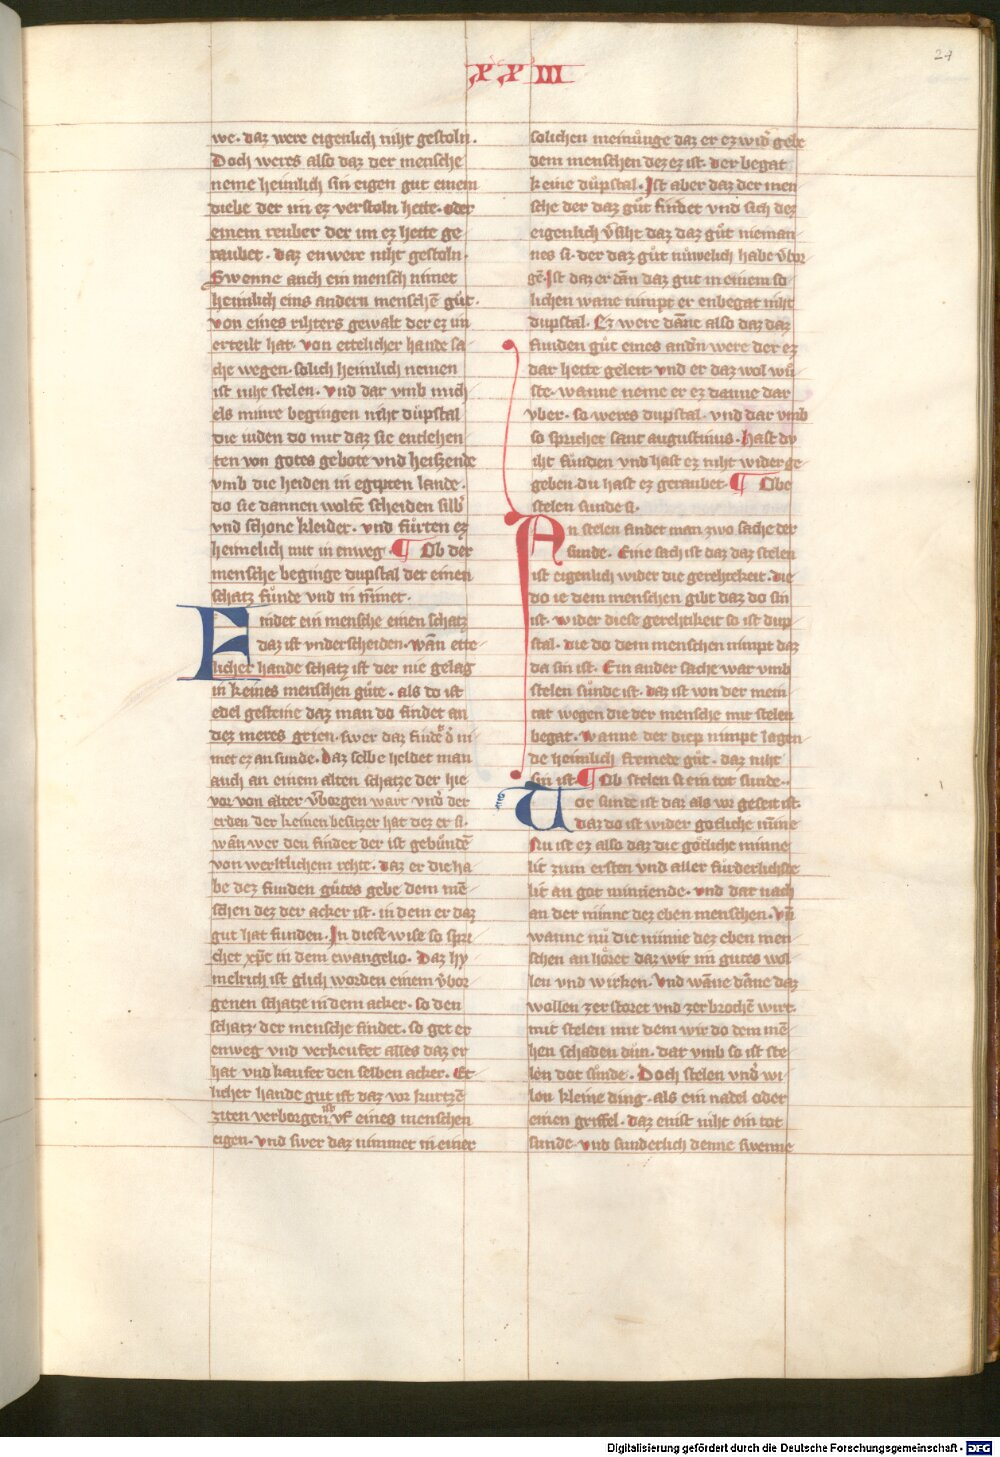 XXIII
24
we. daz were eigenlich niht gestoln.
Doch weres also daz der mensche
neme heimlich sin eigen gut einem
diebe der im ez verstoln hette. oder
einem reuber der im ez hette ge
raubet. daz enwere niht gestoln.
Swenne auch ein mensch nimet
heimlich eins andern menschē gůt.
von eines rihters gewalt der ez im
erteilt hat. von ettelicher hande sa
che wegen. solich heimlich nemen
ist niht stelen. vnd dar vmb mich
els minre begingen niht důpstal
die iuden do mit daz sie entlehen
ten von gotes gebote vnd heizzende
vmb die heiden in egipten lande.
do sie dannen woltē scheiden silb̾
vnd schone kleider. vnd fůrten ez
heimelich mit in enweg. ¶ Ob der
mensche beginge dupstal der einen
schatz fůnde vnd in nīmet.
Findet ein mensche einen schatz
daz ist vnderscheiden. wān ette
licher hande schatz ist der nie gelag
in keines menschen gůte. als do ist
edel gesteine daz man do findet an
dez meres grien. swer daz findet d̾ ni
met ez an sunde. Daz selbe heldet man
auch an einem alten schatze der hie
vor von alter v̾borgen wart vnd̾ der
erden der keinen besitzer hat dez er si.
wān wer den findet der ist gebůndē
von werltlichem rehte. daz er die ha
be dez funden gůtes gebe dem mē
schen dez der acker ist. in dem er daz
gut hat funden. In diese wise so spri
chet xp̄c in dem ewangelio. Daz hy
melrich ist glich worden einem v̾bor
genen schatze in dem acker. so den
schatz der mensche findet. so get er
enweg vnd verkeufet alles daz er
hat vnd kaufet den selben acker. Et
licher hande gut ist daz vor kurtzē
ziten verborgen ist vf eines menschen
eigen. vnd swer daz nimmet in einer
solichen meinůnge daz er ez wid̾ gebe
dem menschen dez ez ist. der begat
keine důpstal. Ist aber daz der men
sche der daz gůt findet vnd sich dez
eigenlich v̾siht daz daz gůt nieman
nes si. der daz gůt nůwelich habe v̾bor
gē. Ist daz er dān daz gut in einem so
lichen wane nimpt er enbegat niht
dupstal. Ez were dāne also daz daz
funden gůt eines and̾n were der ez
dar hette geleit. vnd er daz wol wů
ste. wanne neme er ez danne dar
vber. so weres dupstal. vnd dar vmb
so sprichet sant augustinus. Hast dv
iht funden vnd hast ez niht widerge
geben du hast ez geraubet. ¶ Obe
stelen sunde si.
An stelen findet man zwo sache der
sunde. Eine sach ist daz daz stelen
ist eigenlich wider die gerehtekeit. die
do ie dem menschen gibt daz do sin
ist. wider diese gerehtikeit so ist dup
stal. die do dem menschen nimpt daz
da sin ist. Ein ander sache war vmb
stelen sůnde ist. daz ist von der mein
tat wegen die der mensche mit stelen
begat. wanne der diep nimpt lagen
de heimlich fremede gůt. daz niht
sin ist. ¶ Ob stelen si ein tot sunde.
Tot sunde ist daz als vor geseit ist.
daz do ist wider gotliche mīne
Nu ist ez also daz die gotliche minne
lit zum ersten vnd aller fůrderlichste
lit an got minnende. vnd dar nach
an der minne dez eben menschen. vn̄
wanne nů die minne dez eben men
schen an hőret daz wir im gutes wol
len vnd wirken. Vnd wāne dāne daz
wollen zerstoret vnd zerbrochē wirt.
mit stelen mit dem wir do dem mē
hen schaden důn. dar vmb so ist ste
len dot sůnde. Doch stelen vnd̾ wi
lon kleine ding. als ein nadel oder
einen griffel. daz enist niht ein tot
sunde. vnd sunderlich denne swenne
Digitalisierung gefördert durch die Deutsche Forschungsgemeinschaft - DFG